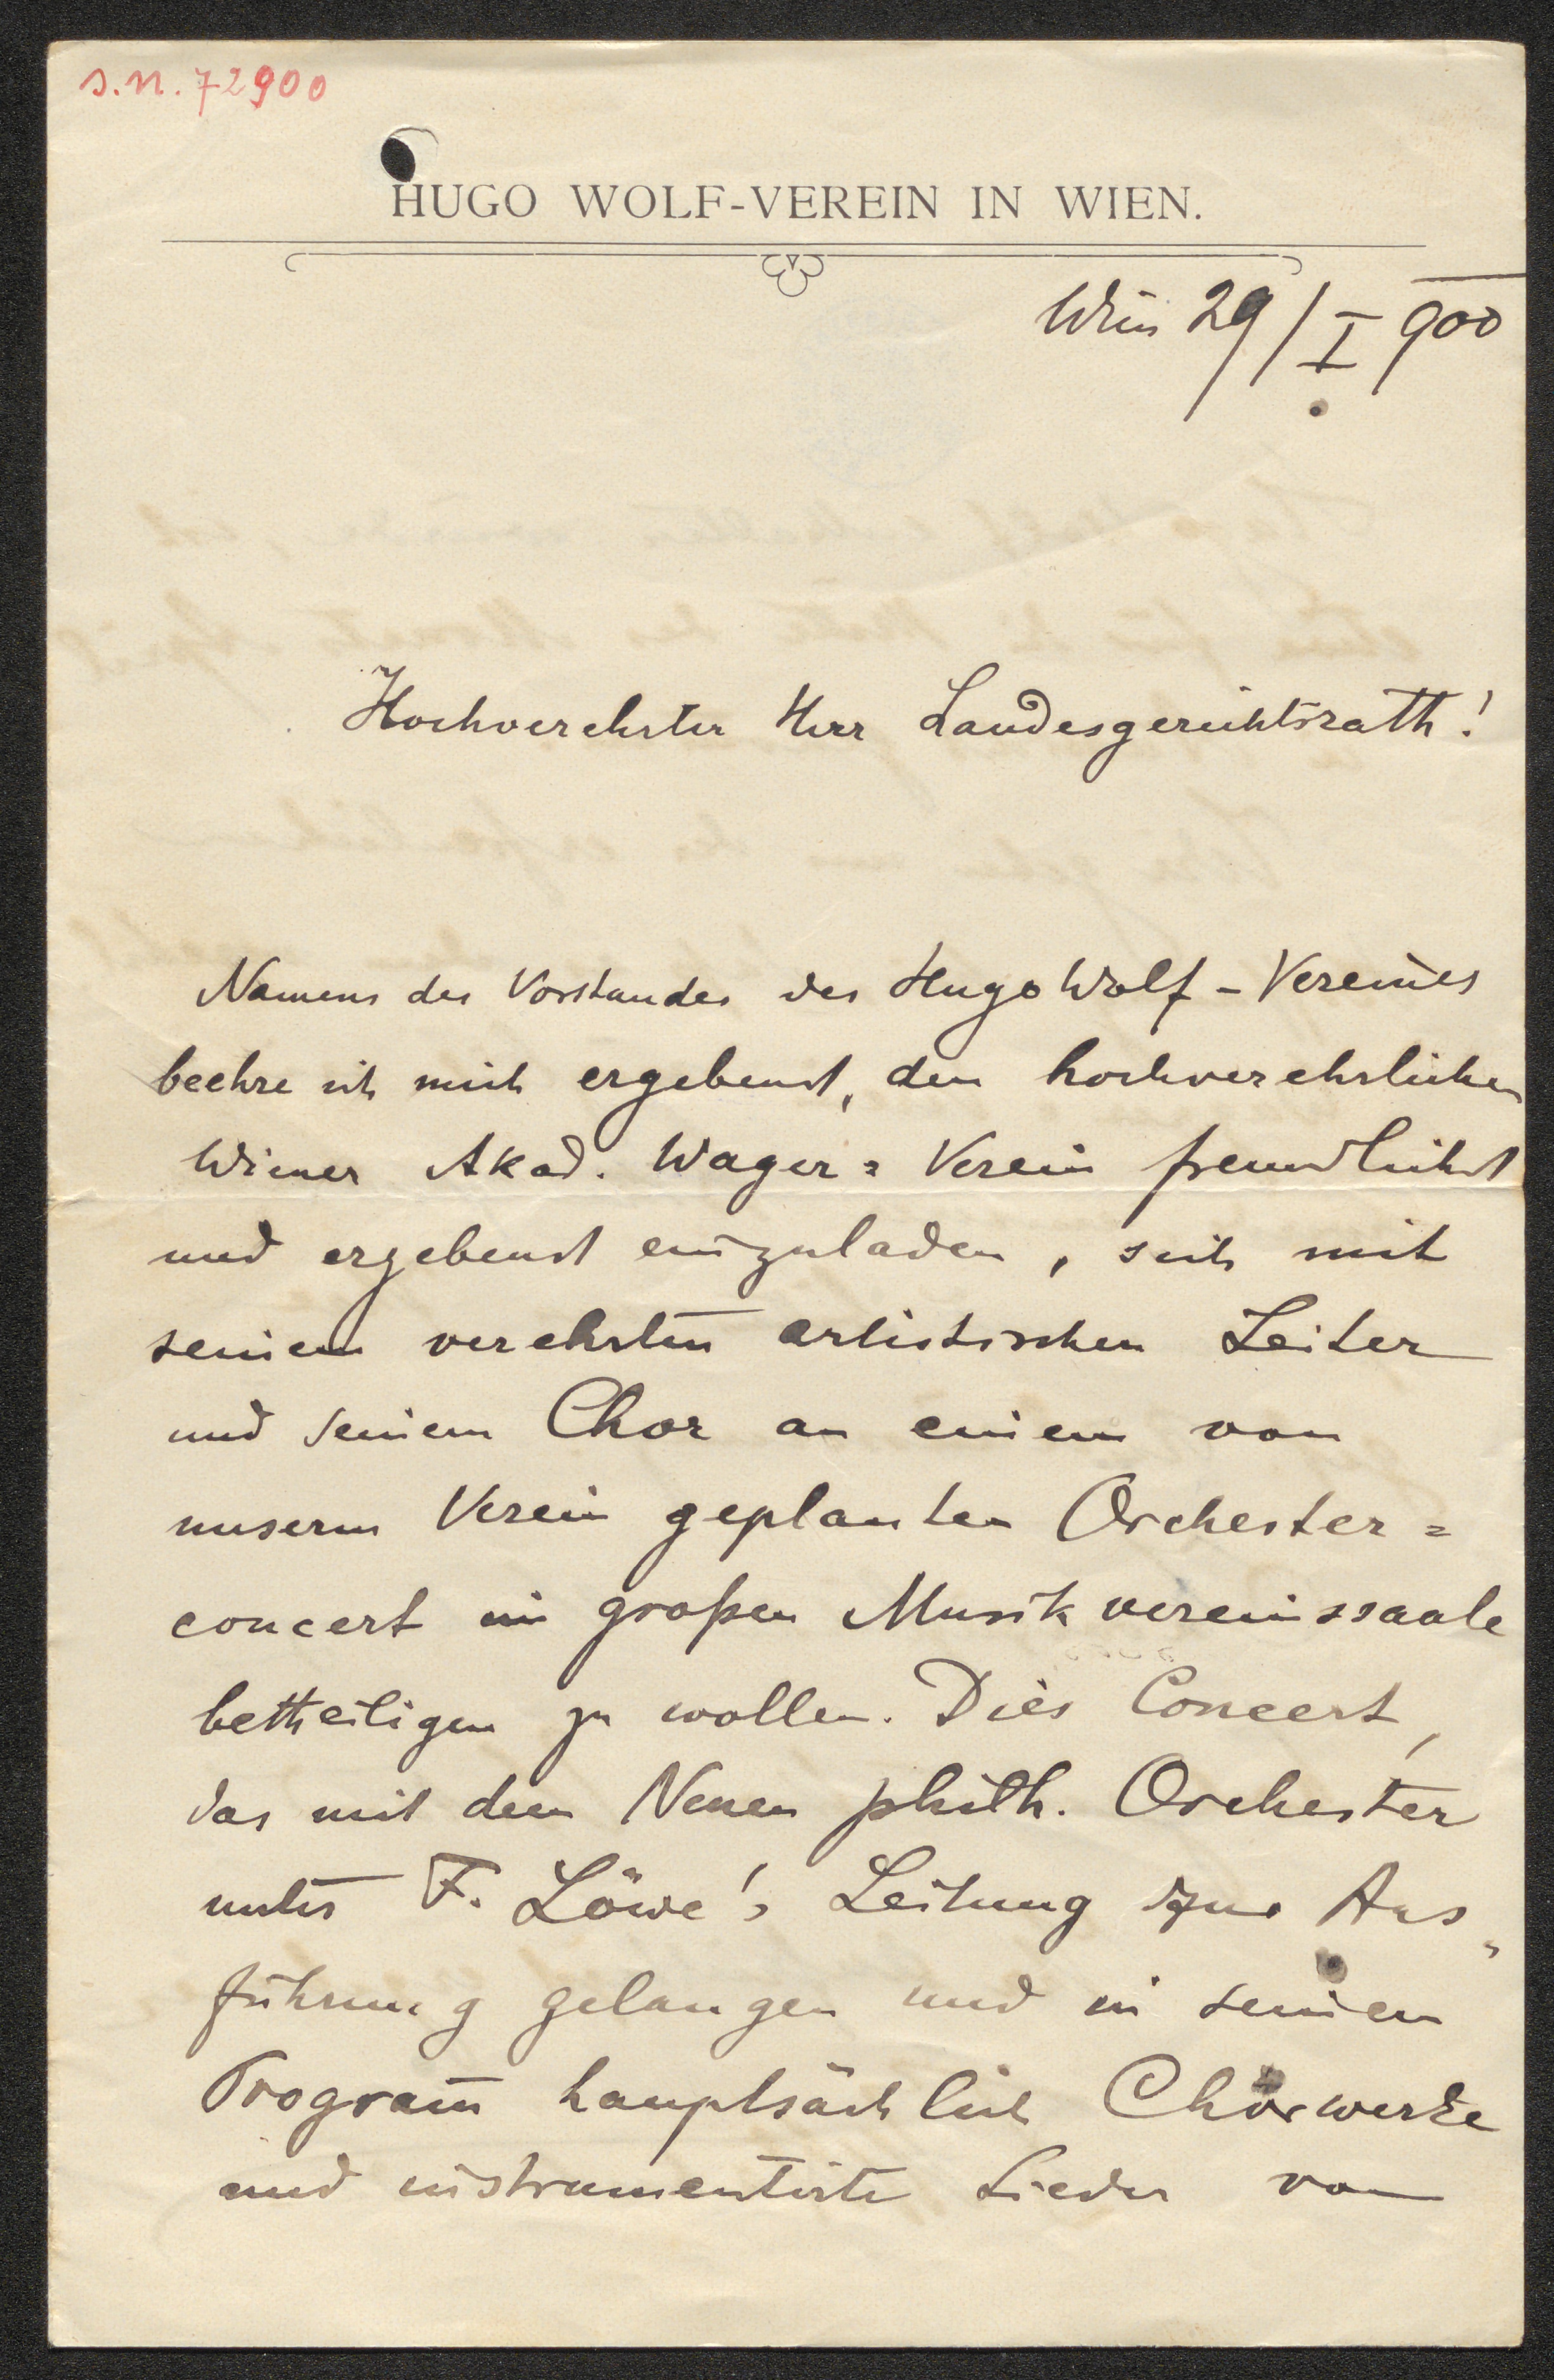 J.N. 72900
HUGO WOLF-VEREIN IN WIEN.
Wien 29/I 900
Hochverehrter Herr Landesgerichtsrath!
Namens des Vorstandes des Hugo Wolf-Vereines
beehre ich mich ergebenst, den hochverehrlichen
Wiener Akad. Wager= Verein freundlichst
und ergebenst einzuladen, sich mit
seinem verehrten artistischen Leiter
und seinem Chor an einem von
unserm Verein geplanten Orchester=
concert im großen Musikvereinssaale
betheiligen zu wollen. Dies Concert,
das mit dem Neuen philh. Orchester
unter F. Löwe's Leitung zur Aus=
führung gelangen und in seinem
Program̅ hauptsächlich Chorwerke
und instrumentirte Lieder von